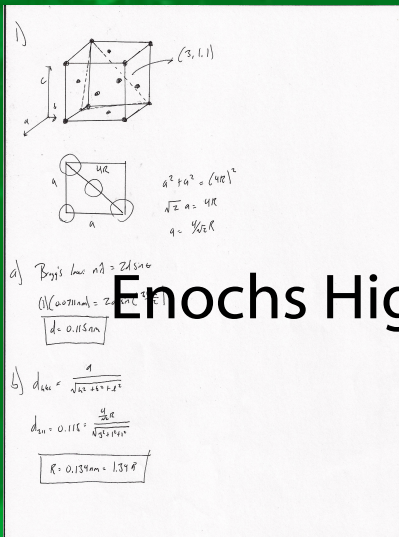 1)
(3,1,1)
c
a b
4R
a
a
a² + a² = (4R)²
√2 a = 4R
a = 4/√2 R
a) Bragg's Law nλ = 2d sinθ
(1)(0.0711nm) = 2d sin(
d = 0.115nm
Enochs Hig
b) d_hkl = a / √(h² + k² + l²)
d_311 = 0.115 = 4/√2 R / √(3² + 1² + 1²)
R = 0.134nm = 1.34 Å